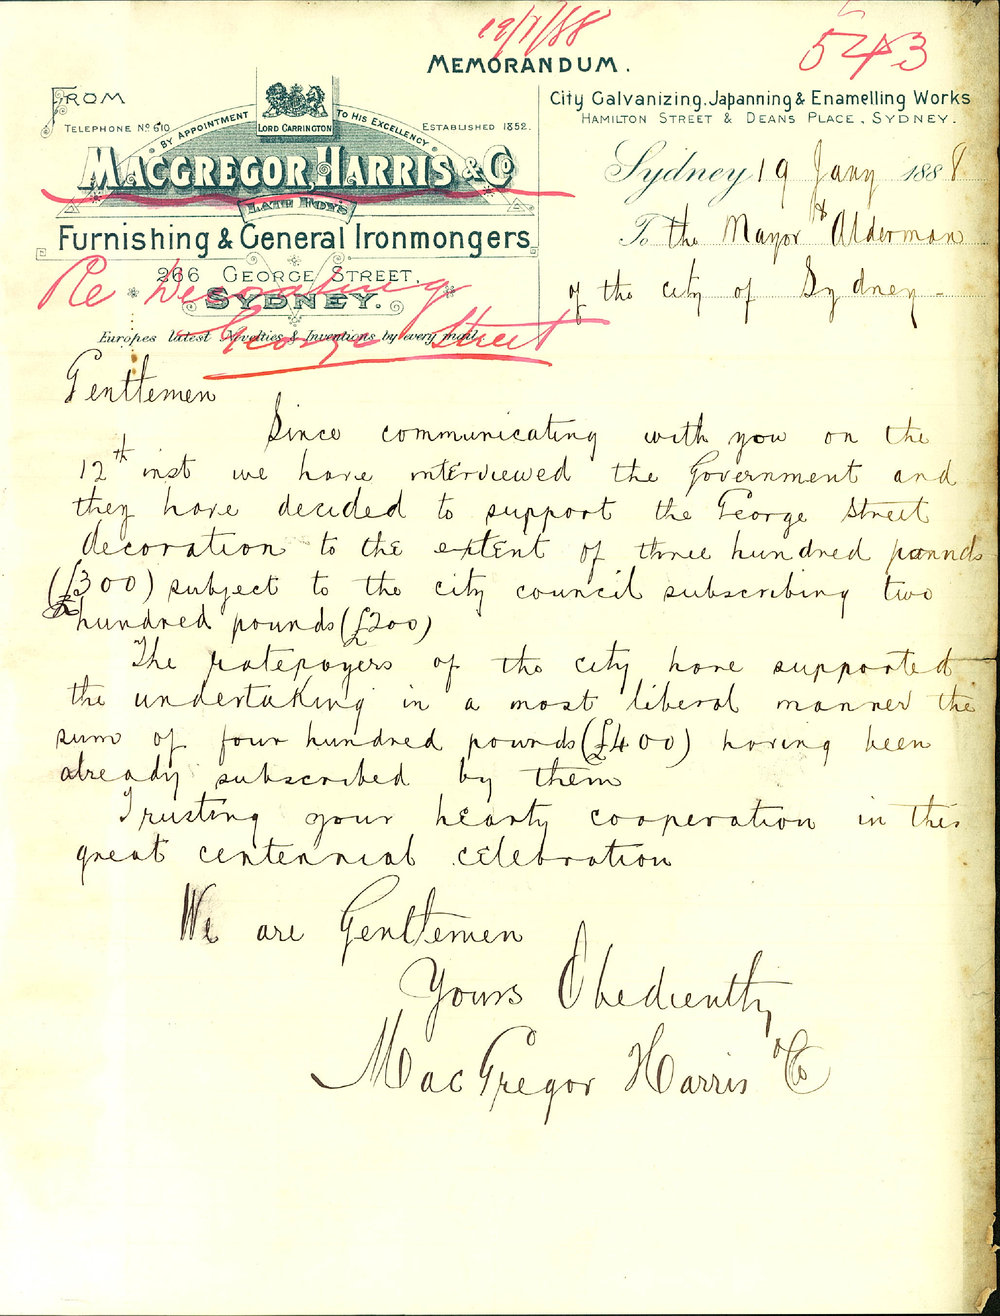 19/1/88
543
MEMORANDUM.
FROM
TELEPHONE No 610
BY APPOINTMENT
LORD CARRINGTON
TO HIS EXCELLENCY
ESTABLISHED 1852.
MACGREGOR, HARRIS & Co
LATE ROY'S
Furnishing & General Ironmongers
266 GEORGE STREET,
SYDNEY.
Europes latest Novelties & Inventions by every mail
Re Decorating
George Street
City Galvanizing, Japanning & Enamelling Works
HAMILTON STREET & DEANS PLACE, SYDNEY.
Sydney 19 Jany 1888
To the Mayor & Alderman
of the city of Sydney -
Gentlemen
Since communicating with you on the
12th inst we have interviewed the Government and
they have decided to support the George Street
decoration to the extent of three hundred pounds
(£300) subject to the city council subscribing two
hundred pounds (£200)
The ratepayers of the city have supported
the undertaking in a most liberal manner the
sum of four hundred pounds (£400) having been
already subscribed by them
Trusting your hearty cooperation in this
great centennial celebration
We are Gentlemen
Yours Obediently
MacGregor Harris & Co